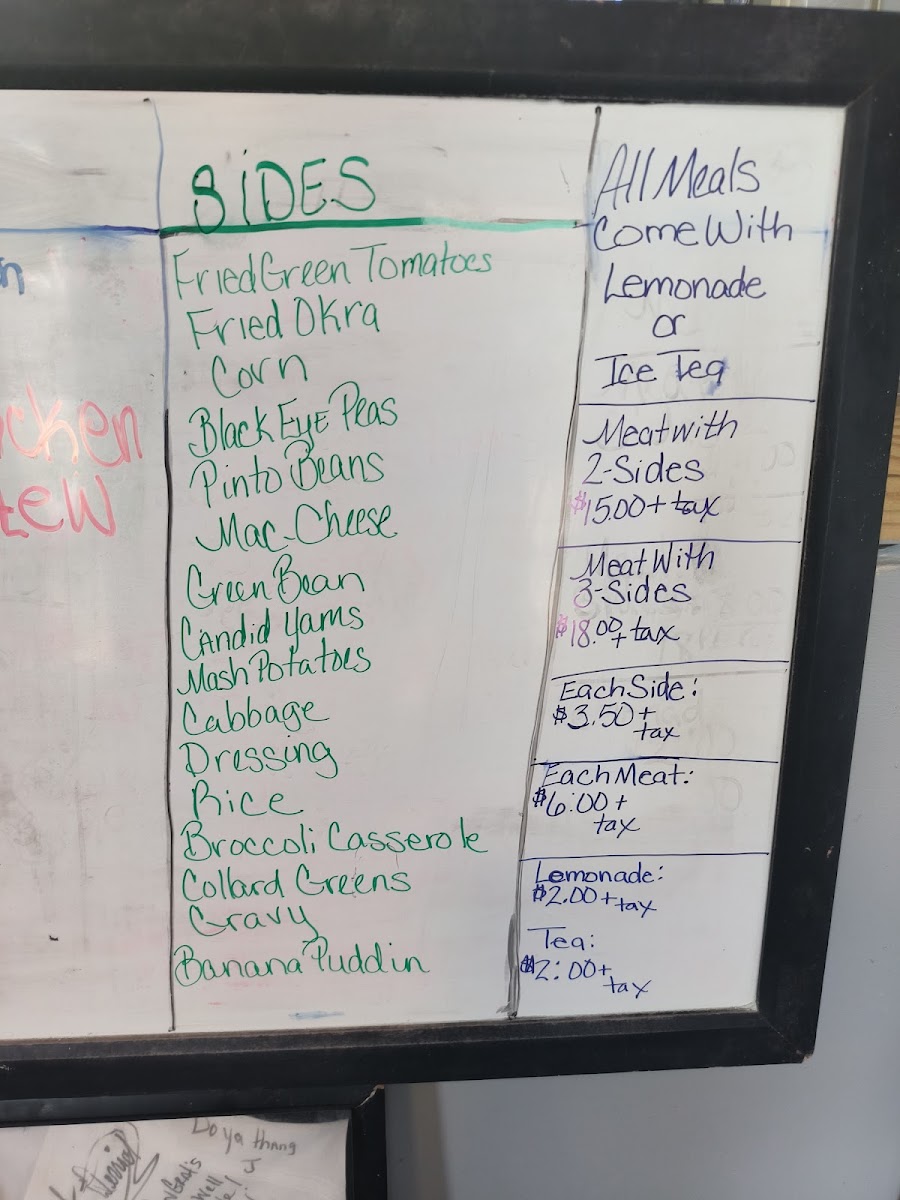 SIDES
Fried Green Tomatoes
Fried Okra
Corn
Black Eye Peas
Pinto Beans
Mac-Cheese
Green Bean
Candid Yams
Mash Potatoes
Cabbage
Dressing
Rice
Broccoli Casserole
Collard Greens
Gravy
Banana Puddin
All Meals
Come With
Lemonade
or
Ice Tea
Meat with
2-Sides
$15.00 + tax
Meat With
3-Sides
$18.00 + tax
Each Side:
$3.50 +
tax
Each Meat:
$6:00 +
tax
Lemonade:
$2.00 + tax
Tea:
$2:00 +
tax
Do ya thang